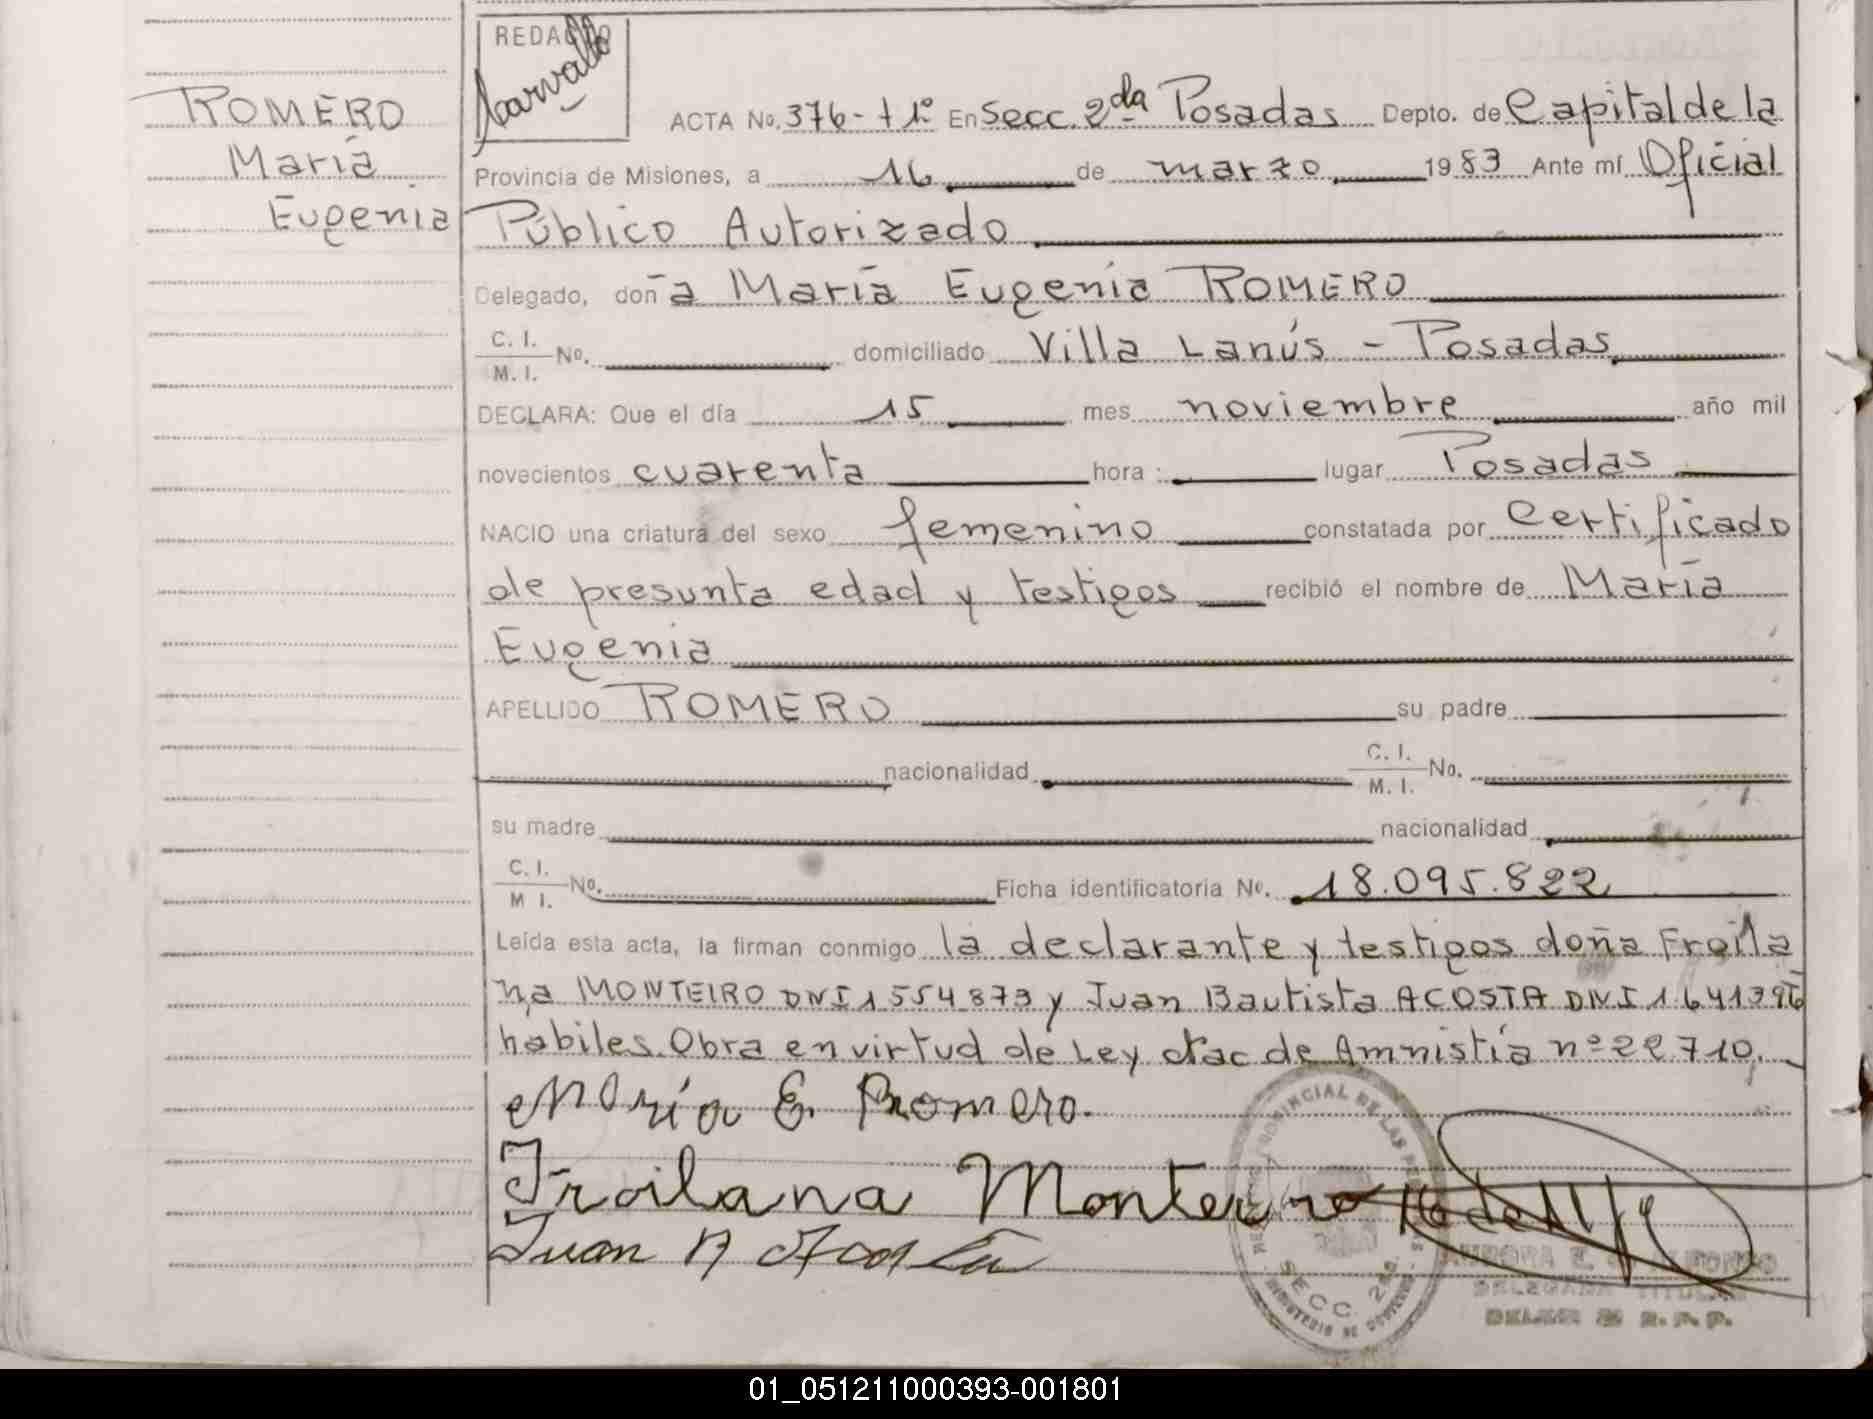 REDACTO
Carvallo
ROMERO
María
Eugenia
ACTA No. 376-t 1º En Secc. 2da Posadas Depto. de Capital de la
Provincia de Misiones, a 16 de marzo 1983 Ante mí Oficial
Público Autorizado
Delegado, doña María Eugenia ROMERO
C. I.
M. I. No. domiciliado Villa Lanús - Posadas
DECLARA: Que el día 15 mes noviembre año mil
novecientos cuarenta hora : lugar Posadas
NACIO una criatura del sexo femenino constatada por Certificado
de presunta edad y testigos recibió el nombre de María
Eugenia
APELLIDO ROMERO su padre
nacionalidad C. I.
M. I. No.
su madre nacionalidad
C. I.
M I. No. Ficha identificatoria No. 18.095.822
Leída esta acta, la firman conmigo la declarante y testigos doña Froila
na MONTEIRO DNI 1554873 y Juan Bautista ACOSTA DNI 1641396
habiles. Obra en virtud de Ley Nac de Amnistía nº 22710.
María E. Romero.
Froilana Monteiro
Juan B Acosta
SECC. 2da.
DELEGADA TITULAR